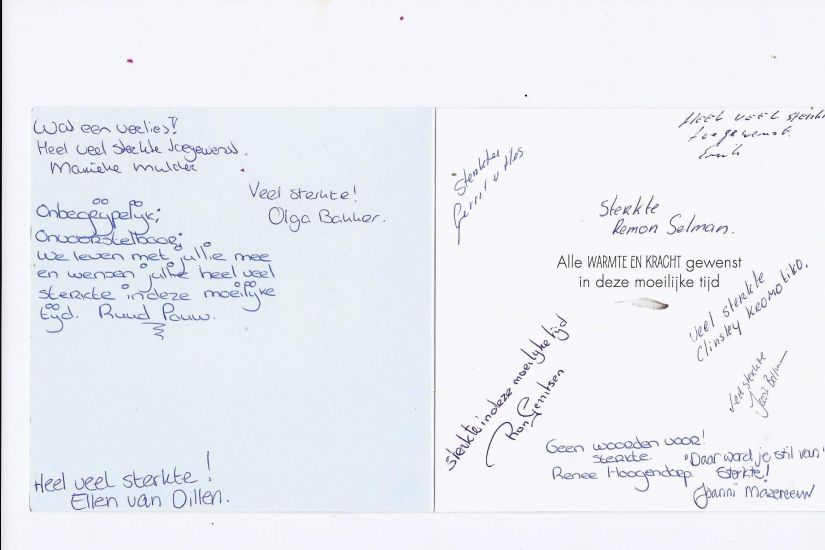 Wat een verlies!!
Heel veel sterkte toegewenst.
Marieke Mulder
Veel sterkte!
Olga Bakker.
Onbegrypelÿk;
Onvoorstelbaar;
We leven met jullie mee
en wensen jullie heel veel
sterkte in deze moeilÿke
tÿd. Ruud Pauw.
Heel veel sterkte!
Ellen van Dillen.
Heel veel sterkte
toegewenst.
Sterkte
Gerrit v
Sterkte
Remon Selman.
Alle WARMTE EN KRACHT gewenst
in deze moeilijke tijd
veel sterkte
Clinsky Kromotiko.
veel sterkte
Sterkte in deze moeilijke tijd
Ron Gerritsen
Geen woorden voor!
sterkte.
Renee Hoogendorp.
"Daar word je stil van"
Sterkte!
Joanni Mazereeuw